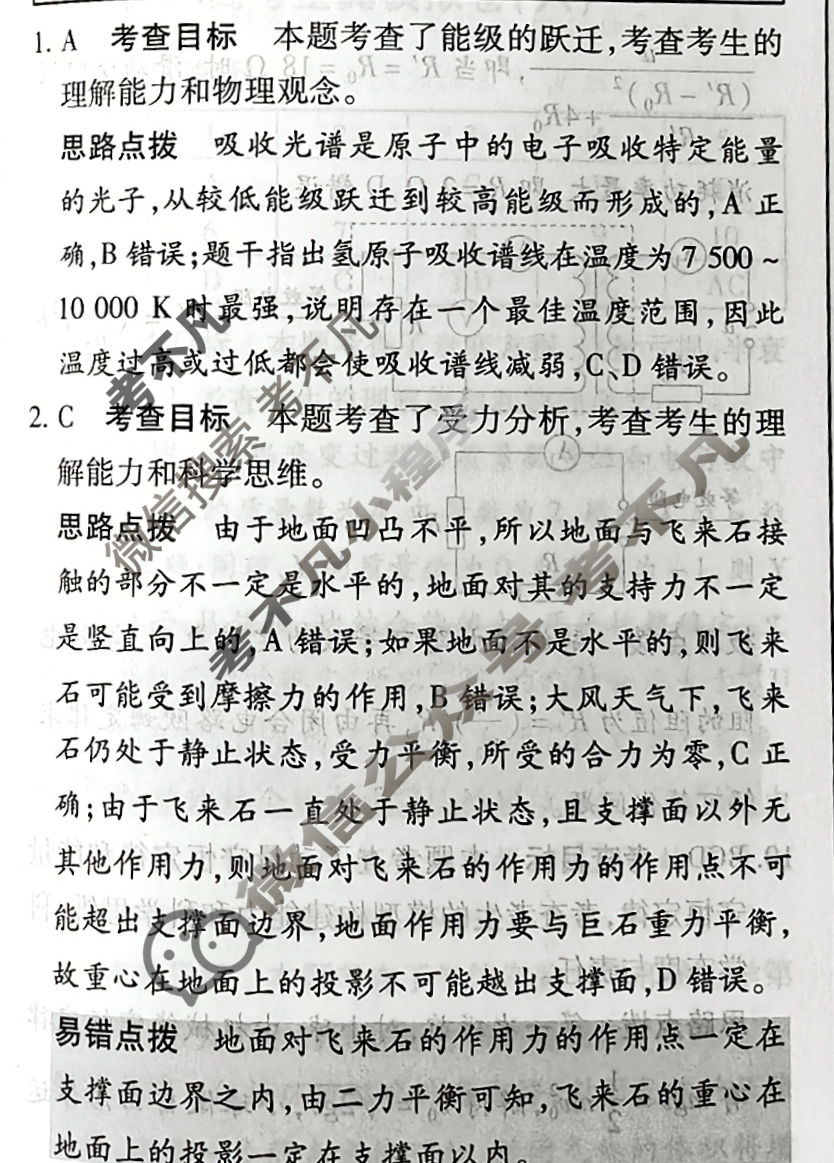 1. A 考查目标 本题考查了能级的跃迁,考查考生的
理解能力和物理观念。
思路点拨 吸收光谱是原子中的电子吸收特定能量
的光子,从较低能级跃迁到较高能级而形成的,A 正
确,B 错误;题干指出氢原子吸收谱线在温度为 7 500 ~
10 000 K 时最强,说明存在一个最佳温度范围,因此
温度过高或过低都会使吸收谱线减弱,C、D 错误。
2. C 考查目标 本题考查了受力分析,考查考生的理
解能力和科学思维。
思路点拨 由于地面凹凸不平,所以地面与飞来石接
触的部分不一定是水平的,地面对其的支持力不一定
是竖直向上的,A 错误;如果地面不是水平的,则飞来
石可能受到摩擦力的作用,B 错误;大风天气下,飞来
石仍处于静止状态,受力平衡,所受的合力为零,C 正
确;由于飞来石一直处于静止状态,且支撑面以外无
其他作用力,则地面对飞来石的作用力的作用点不可
能超出支撑面边界,地面作用力要与巨石重力平衡,
故重心在地面上的投影不可能越出支撑面,D 错误。
易错点拨 地面对飞来石的作用力的作用点一定在
支撑面边界之内,由二力平衡可知,飞来石的重心在
地面上的投影一定在支撑面以内。
考不凡
微信搜索 考不凡
考不凡小程序
微信公众号 考不凡